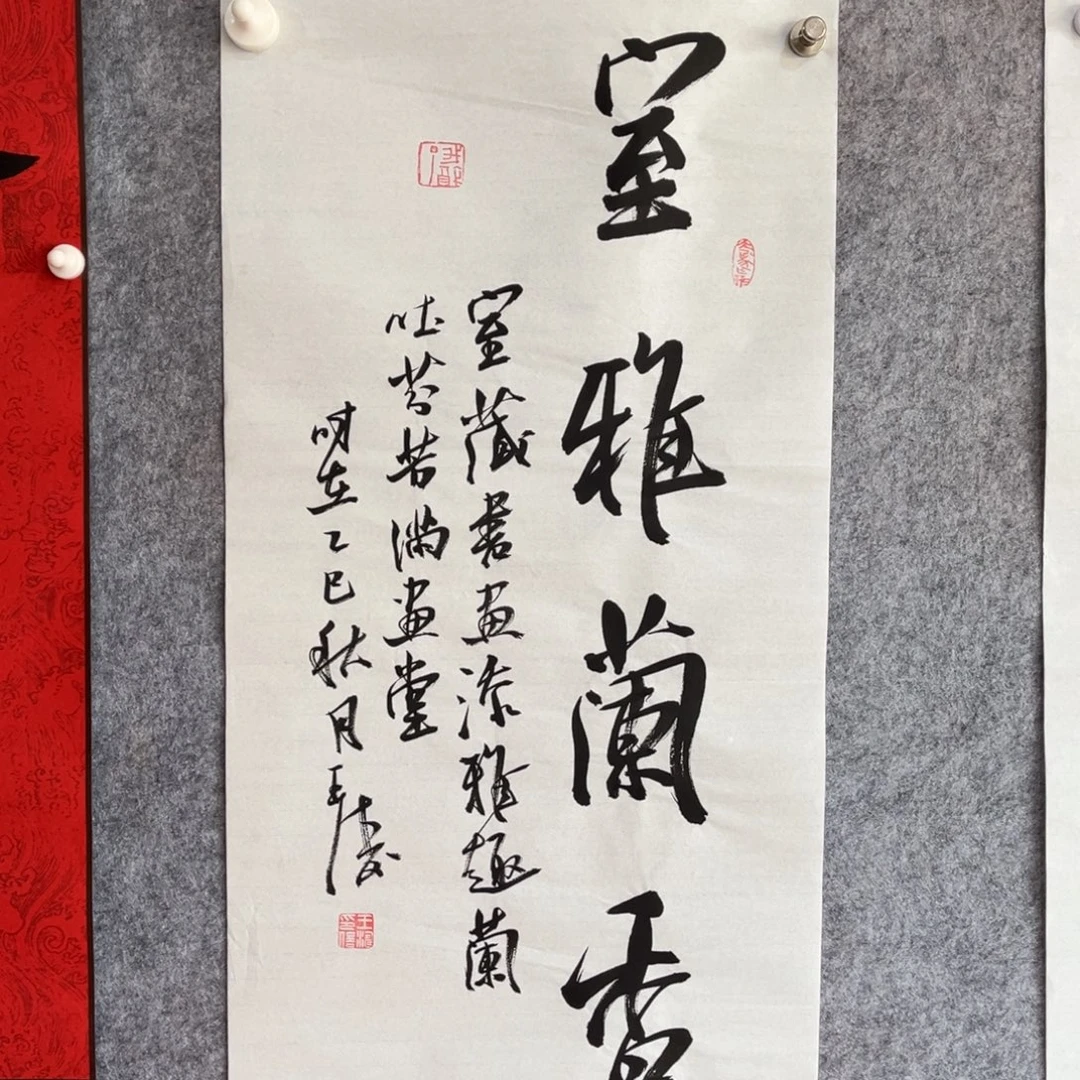 室雅蘭香
室藏書畫添雅趣蘭
吐芬芳滿畫堂
時在乙巳秋月王